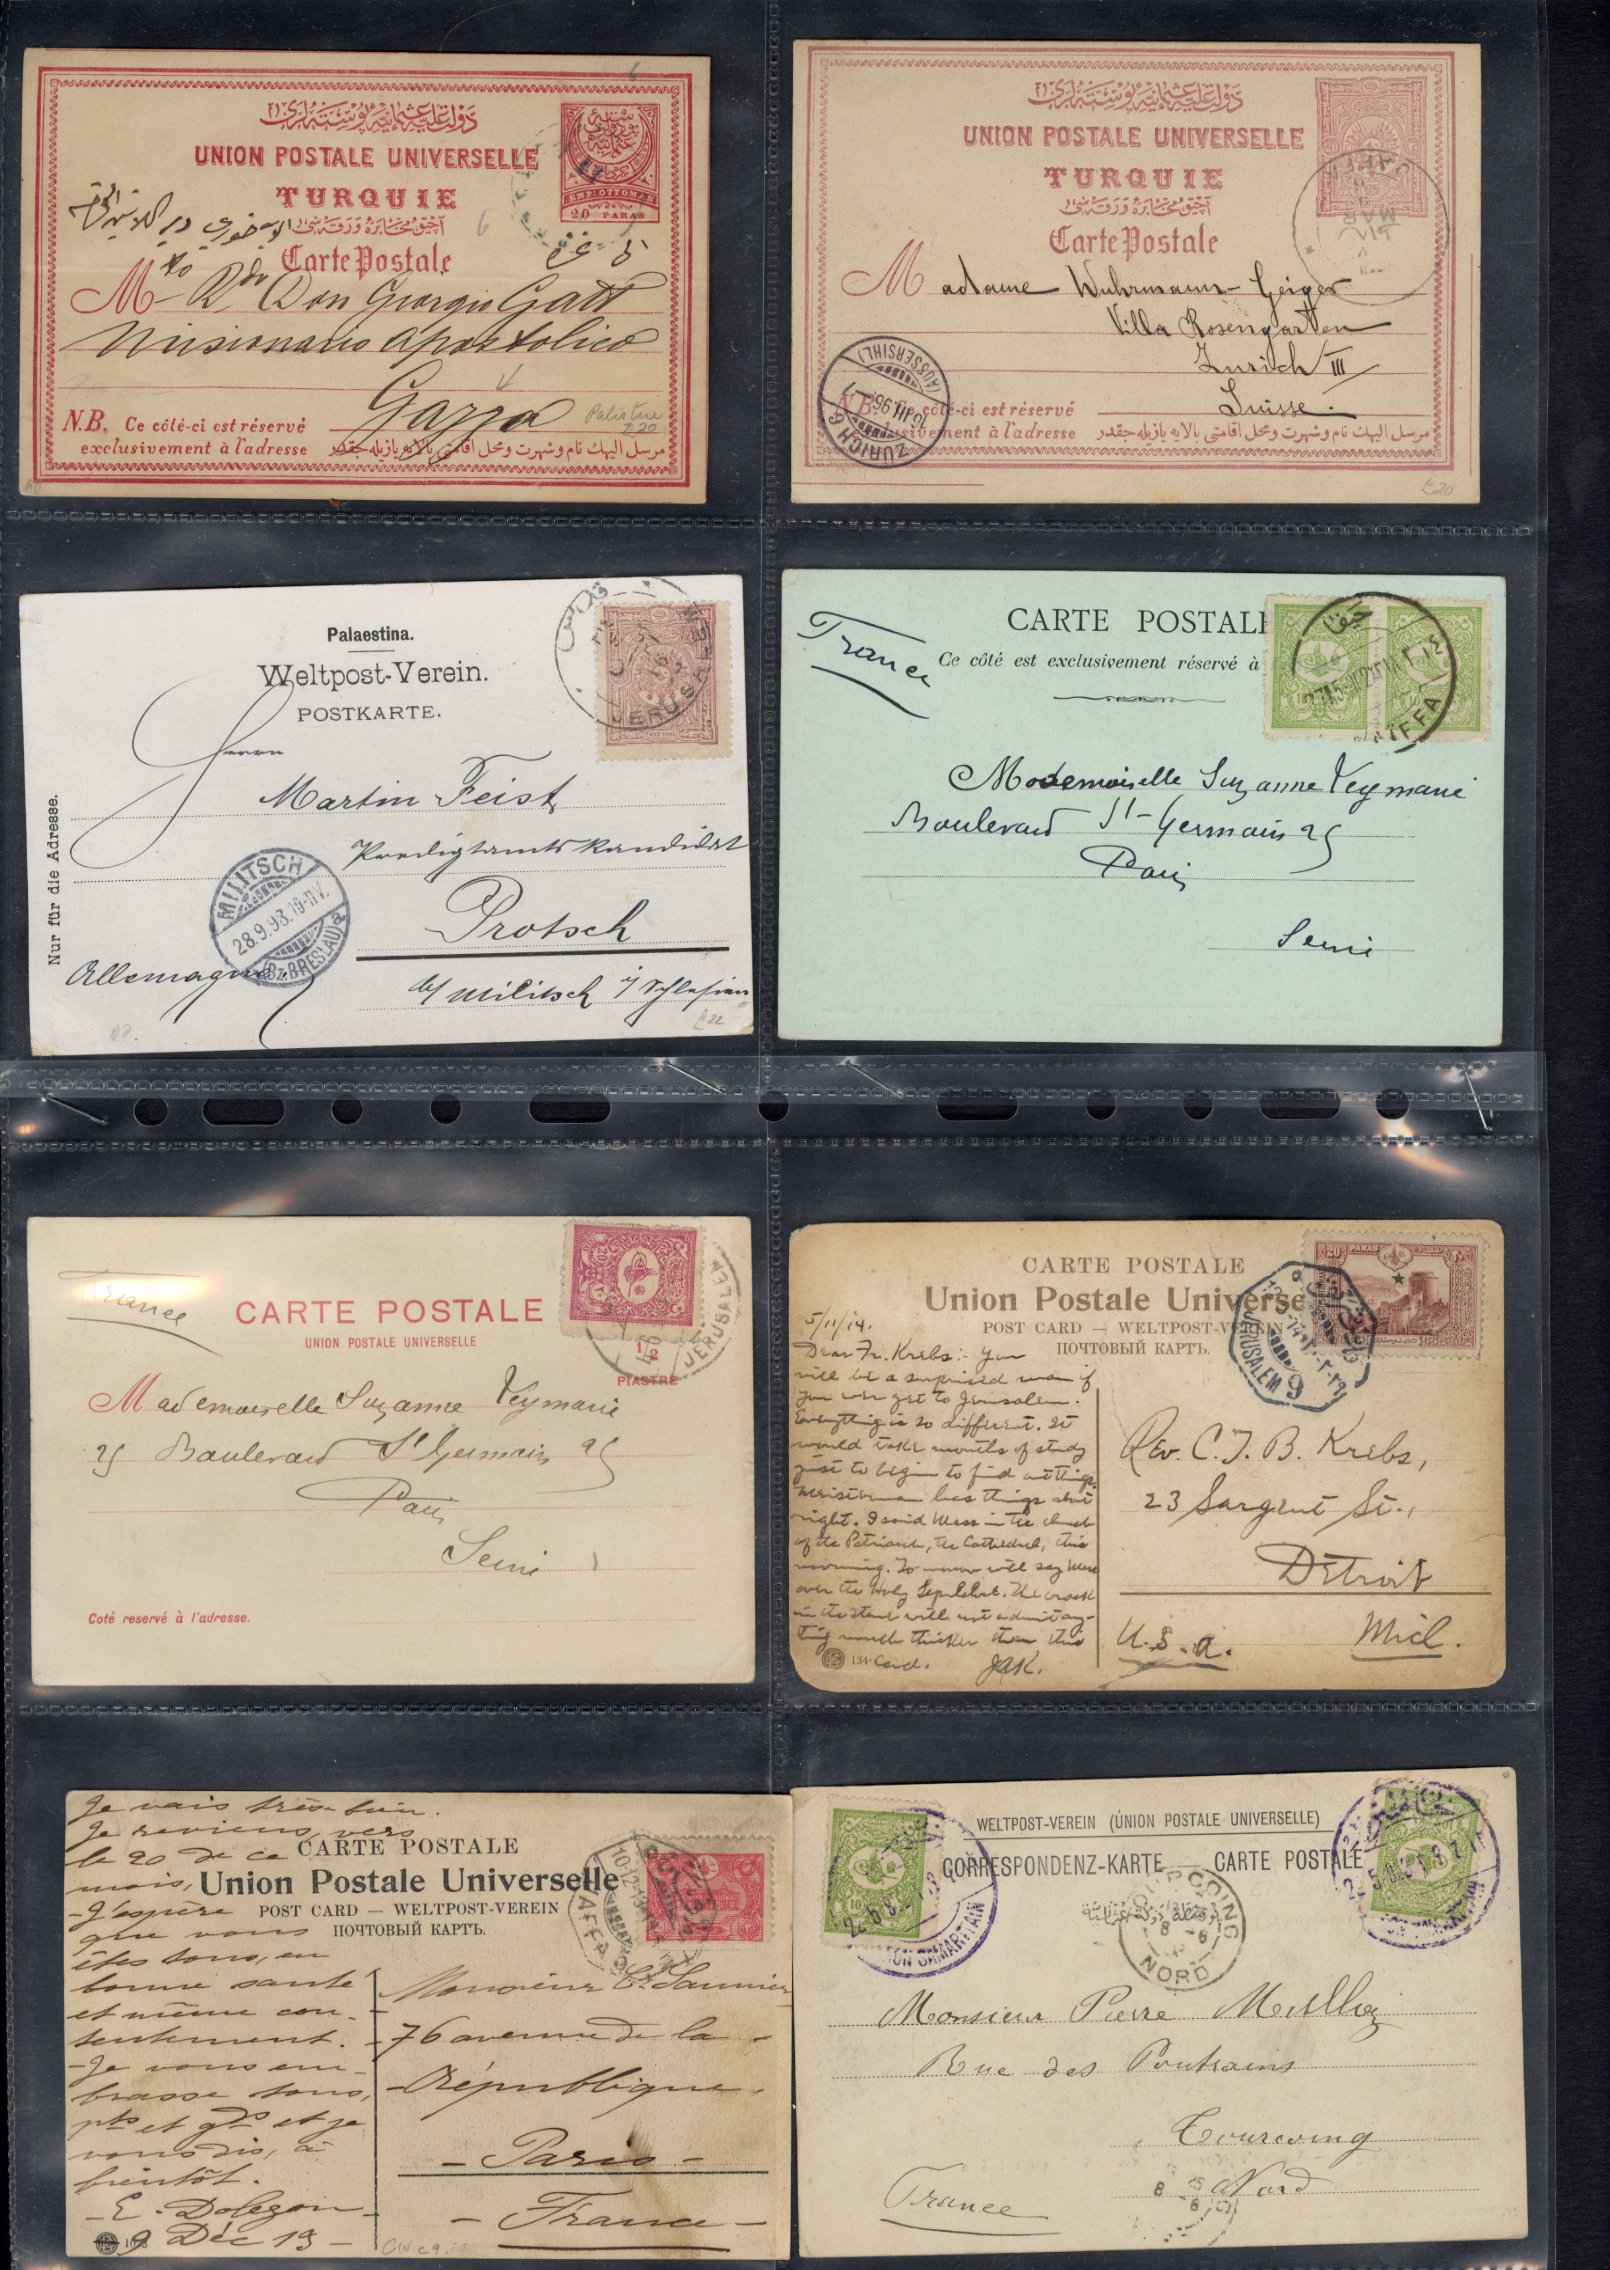 دولت علیه عثمانیه پوسته لری
UNION POSTALE UNIVERSELLE
TURQUIE
آچیق مخابره ورقه سی
Carte Postale
EMP: OTTOMAN
20 PARAS
Mto Rdo Don Giorgio Gatt
Missionario Apostolico
Gazza
Palestine
N.B. Ce côté-ci est réservé
exclusivement à l'adresse
مرسل الیهك نام و شهرت و محل اقامتی بالایه یازیله جقدر
دولت علیه عثمانیه پوسته لری
UNION POSTALE UNIVERSELLE
TURQUIE
آچیق مخابره ورقه سی
Carte Postale
Madame Wuhrmann-Geiger
Villa Rosengarten
Zurich III
Suisse.
N.B. Ce côté-ci est réservé
exclusivement à l'adresse
مرسل الیهك نام و شهرت و محل اقامتی بالایه یازیله جقدر
ZÜRICH 9
16.III.96.-7
(AUSSERSIHL)
Palaestina.
Weltpost-Verein.
POSTKARTE.
JERUSALEM
Nur für die Adresse.
Herrn
Martin Feist
Predigtamts Kandidat
Protsch
b/ Militsch i/ Schlesien
Allemagne
MILITSCH
28.9.98.10-11V.
(Bz.BRESLAU) a
France
CARTE POSTALE
Ce côté est exclusivement réservé à
Mademoiselle Suzanne Veymarie
Boulevard St-Germain 25
Paris
Seine
France
CARTE POSTALE
UNION POSTALE UNIVERSELLE
1/2
PIASTRE
JERUSALEM
Mademoiselle Suzanne Veymarie
25 Boulevard St Germain 25
Paris
Seine
Coté reservé à l'adresse.
CARTE POSTALE
Union Postale Universe
POST CARD — WELTPOST-VEREIN
ПОЧТОВЫЙ КАРТЪ.
20 PARAS
JERUSALEM 9
5/11/14.
Dear Fr. Krebs:- You
will be a surprised man if
you ever get to Jerusalem.
Everything is so different. It
would take months of study
just to begin to find out things.
has things about
right. I said Mass in the church
of the Patriarch, the Cathedral, this
morning. To-morrow will say Mass
over the Holy Sepulchre. The crack
in the stone will not admit any-
thing much thicker than this
134- Card. JAK.
Rev. C. J. B. Krebs,
23 Sargent St.,
Detroit
U.S.A. Mich.
Je vais très-bien.
Je reviens vers
le 20 de ce
mois,
- J'espère
que vous
êtes tous, en
bonne santé
et même con-
tentement.
- Je vous em-
brasse tous,
pts et gds et je
vous dis, à
bientôt.
E. Dolegon
9 Déc 13 -
CARTE POSTALE
Union Postale Universelle
POST CARD — WELTPOST-VEREIN
ПОЧТОВЫЙ КАРТЪ.
10-12-13
JAFFA
Monsieur C. Saunier
76 avenue de la
République
- Paris -
- France -
WELTPOST-VEREIN (UNION POSTALE UNIVERSELLE)
CORRESPONDENZ-KARTE — CARTE POSTALE
TOURCOING
NORD
Monsieur Pierre
Rue des Poutrains
Tourcoing
Nord
France